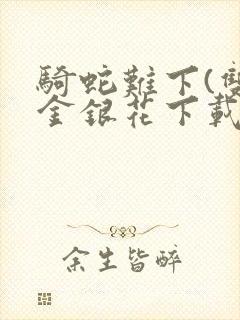 騎蛇難下(雙
金銀花下載
余生皆醉